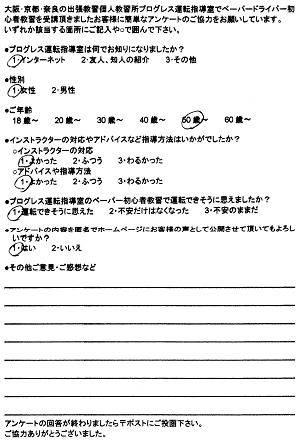 大阪・京都・奈良の出張教習個人教習所プログレス運転指導室でペーパードライバー初
心者教習を受講頂きましたお客様に簡単なアンケートのご協力をお願いしています。
いずれか該当する箇所にご記入や○で囲んで下さい。
●プログレス運転指導室は何でお知りになりましたか?
1・インターネット 2・友人、知人の紹介 3・その他
●性別
1・女性 2・男性
●ご年齢
18歳～ 20歳～ 30歳～ 40歳～ 50歳～ 60歳～
●インストラクターの対応やアドバイスなど指導方法はいかがでしたか?
○インストラクターの対応
1・よかった 2・ふつう 3・わるかった
○アドバイスや指導方法
1・よかった 2・ふつう 3・わるかった
●プログレス運転指導室のペーパー初心者教習で運転できそうに思えましたか?
1・運転できそうに思えた 2・不安だけはなくなった 3・不安のままだ
●アンケートの内容を匿名でホームページにお客様の声として公開させて頂いてもよろし
いですか?
1・はい 2・いいえ
●その他ご意見・ご感想など
アンケートの回答が終わりましたら〒ポストにご投函下さい。
ご協力ありがとうございました。